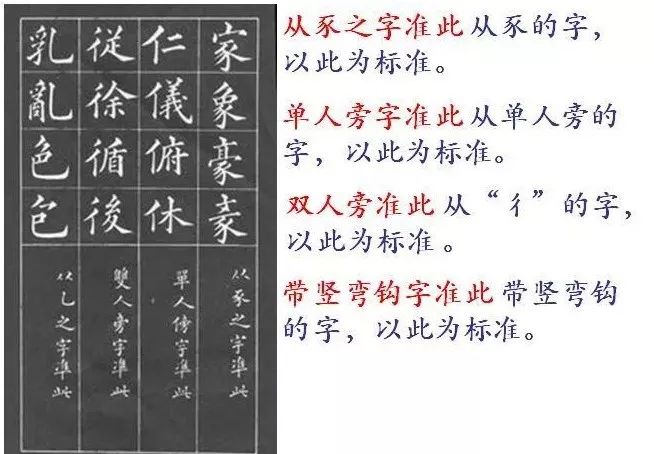 家象豪
仁儀俯休
從徐循後
乳亂色包
从豕之字準此
單人傍字準此
雙人旁字準此
从乚之字準此
从豕之字准此 从豕的字，
以此为标准。
单人旁字准此 从单人旁的
字，以此为标准。
双人旁准此 从“彳”的字，
以此为标准。
带竖弯钩字准此 带竖弯钩
的字，以此为标准。